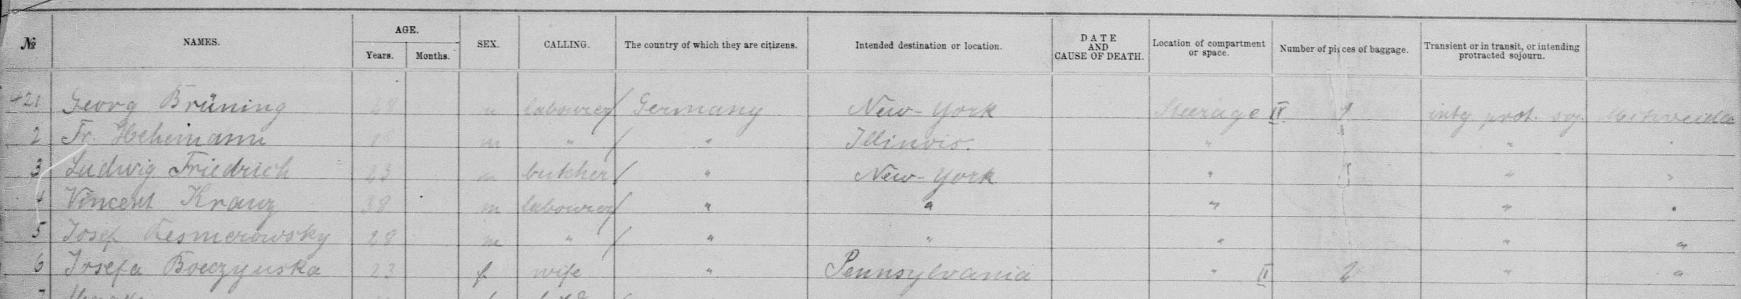 № NAMES. AGE. Years. Months. SEX. CALLING. The country of which they are citizens. Intended destination or location. DATE AND CAUSE OF DEATH. Location of compartment or space. Number of pieces of baggage. Transient or in transit, or intending protracted sojourn.
421 Georg Brüning 28 m labourer Germany New-York Steerage IV. 1 intg prot. soj.
2 Fr. Hehemann 18 m " " Illinois. " " "
3 Ludwig Friedrich 23 m butcher " New-York " 1 " "
4 Vincent Kranz 38 m labourer " " " " "
5 Josef 28 m " " " " " "
6 Josefa 23 f wife " Pennsylvania " II 2 " "
7